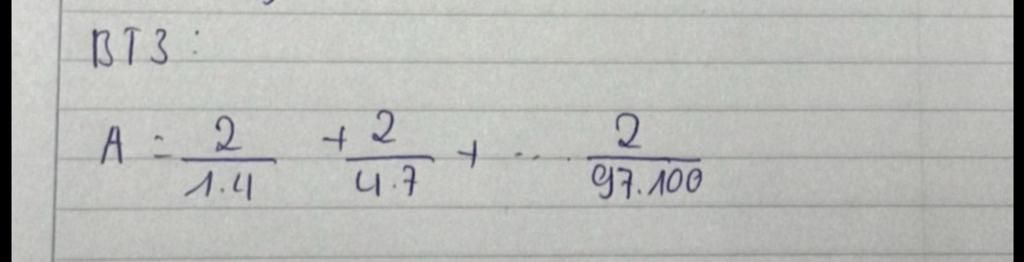 BT3:
A = 2/1.4 + 2/4.7 + ... 2/97.100